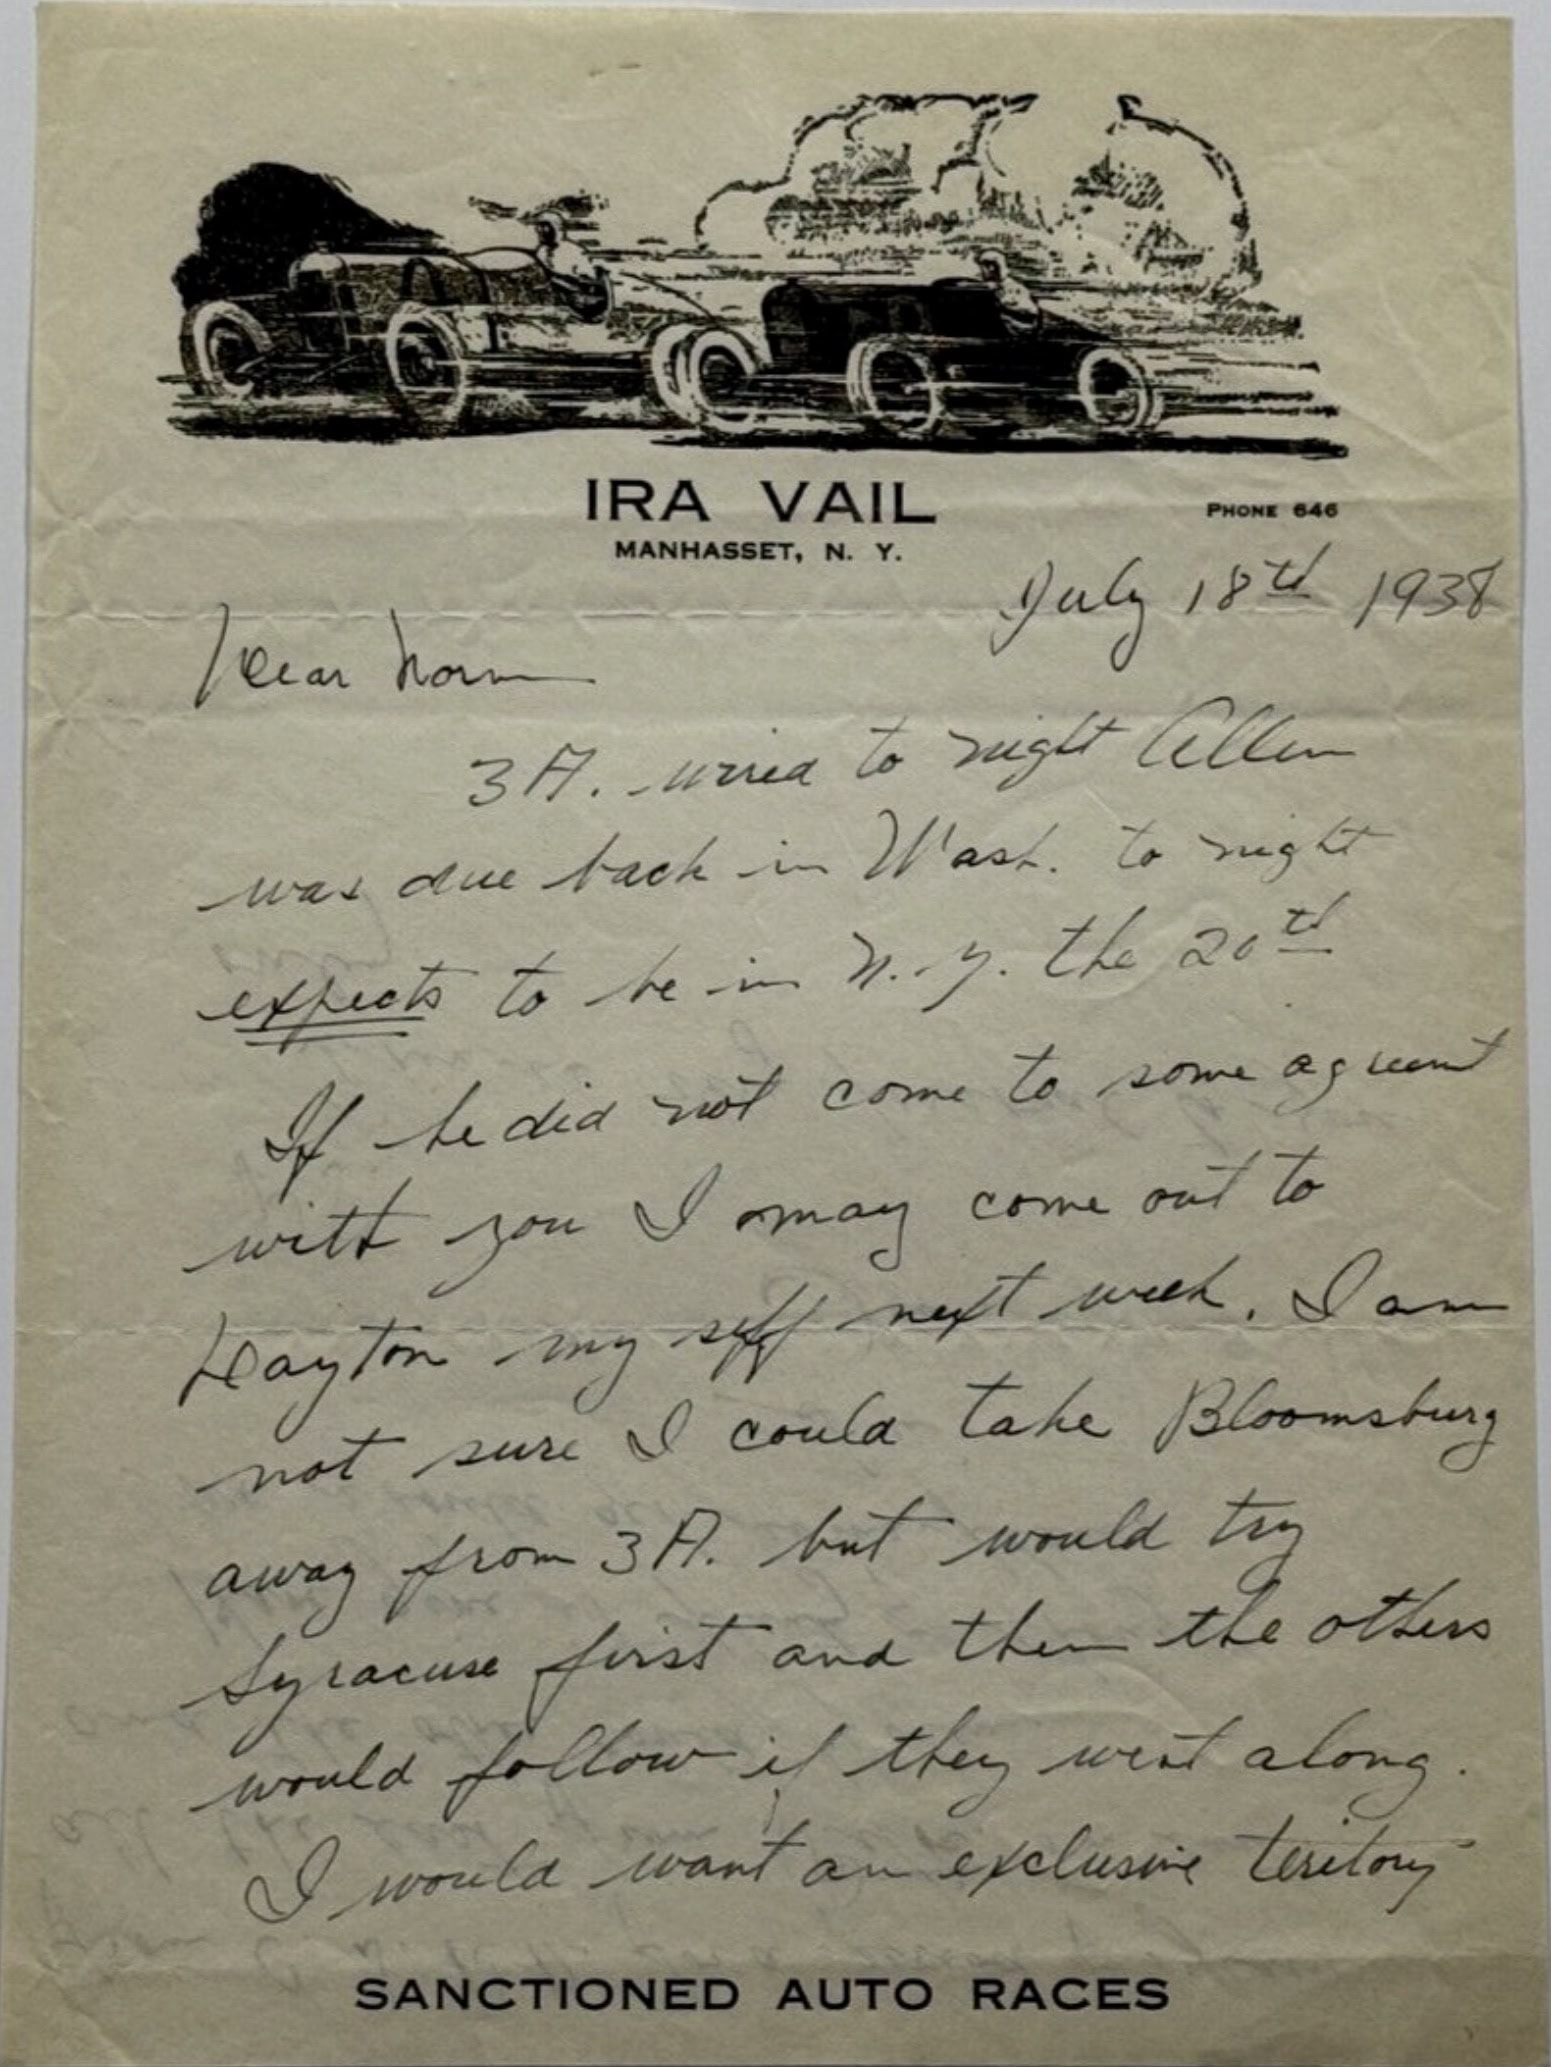 IRA VAIL
PHONE 646
MANHASSET, N. Y.
July 18th 1938
Dear Norm
3A. wired to night Allen
was due back in Wash. to night
expects to be in N.Y. the 20th
If he did not come to some agreemt
with you I may come out to
Dayton my self next week. I am
not sure I could take Bloomsburg
away from 3A. but would try
Syracuse first and then the others
would follow if they went along.
I would want an exclusive teritory
SANCTIONED AUTO RACES